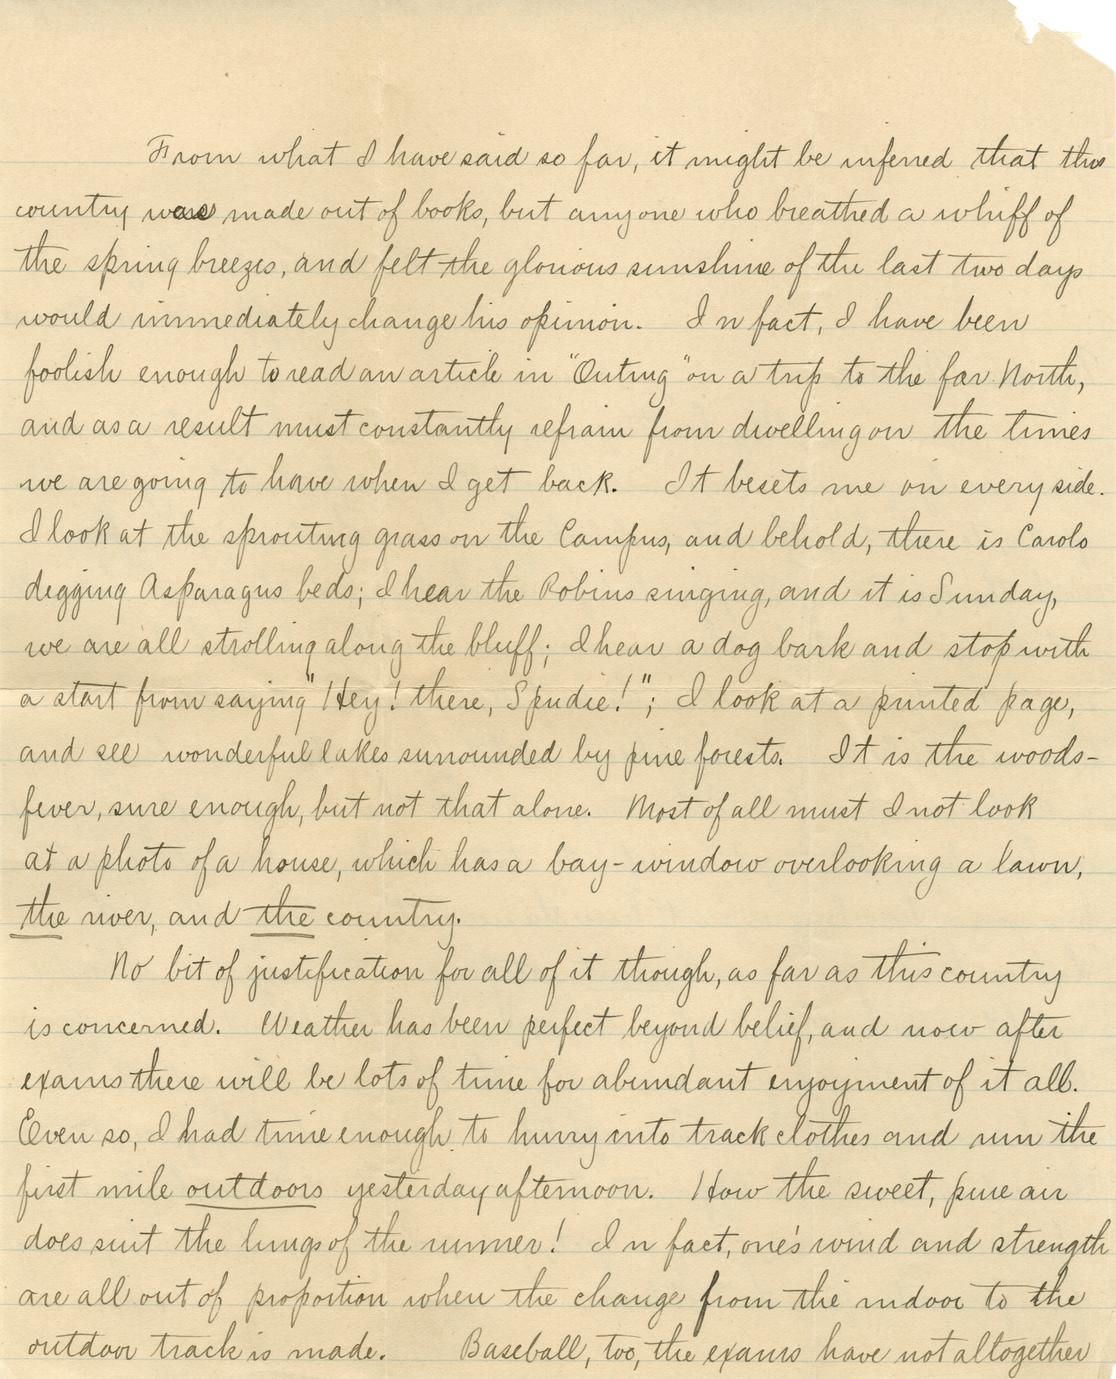 From what I have said so far, it might be inferred that this
country was made out of books, but anyone who breathed a whiff of
the spring breezes, and felt the glorious sunshine of the last two days
would immediately change his opinion. In fact, I have been
foolish enough to read an article in "Outing" on a trip to the far North,
and as a result must constantly refrain from dwelling on the times
we are going to have when I get back. It besets me on every side.
I look at the sprouting grass on the Campus, and behold, there is Carolo
digging Asparagus beds; I hear the Robins singing, and it is Sunday,
we are all strolling along the bluff; I hear a dog bark and stop with
a start from saying "Hey! there, Spudie!"; I look at a printed page,
and see wonderful lakes surrounded by pine forests. It is the woods-
fever, sure enough, but not that alone. Most of all must I not look
at a photo of a house, which has a bay-window overlooking a lawn,
the river, and the country.
No bit of justification for all of it though, as far as this country
is concerned. Weather has been perfect beyond belief, and now after
exams there will be lots of time for abundant enjoyment of it all.
Even so, I had time enough to hurry into track clothes and run the
first mile outdoors yesterday afternoon. How the sweet, pure air
does suit the lungs of the runner! In fact, one's wind and strength
are all out of proportion when the change from the indoor to the
outdoor track is made. Baseball, too, the exams have not altogether